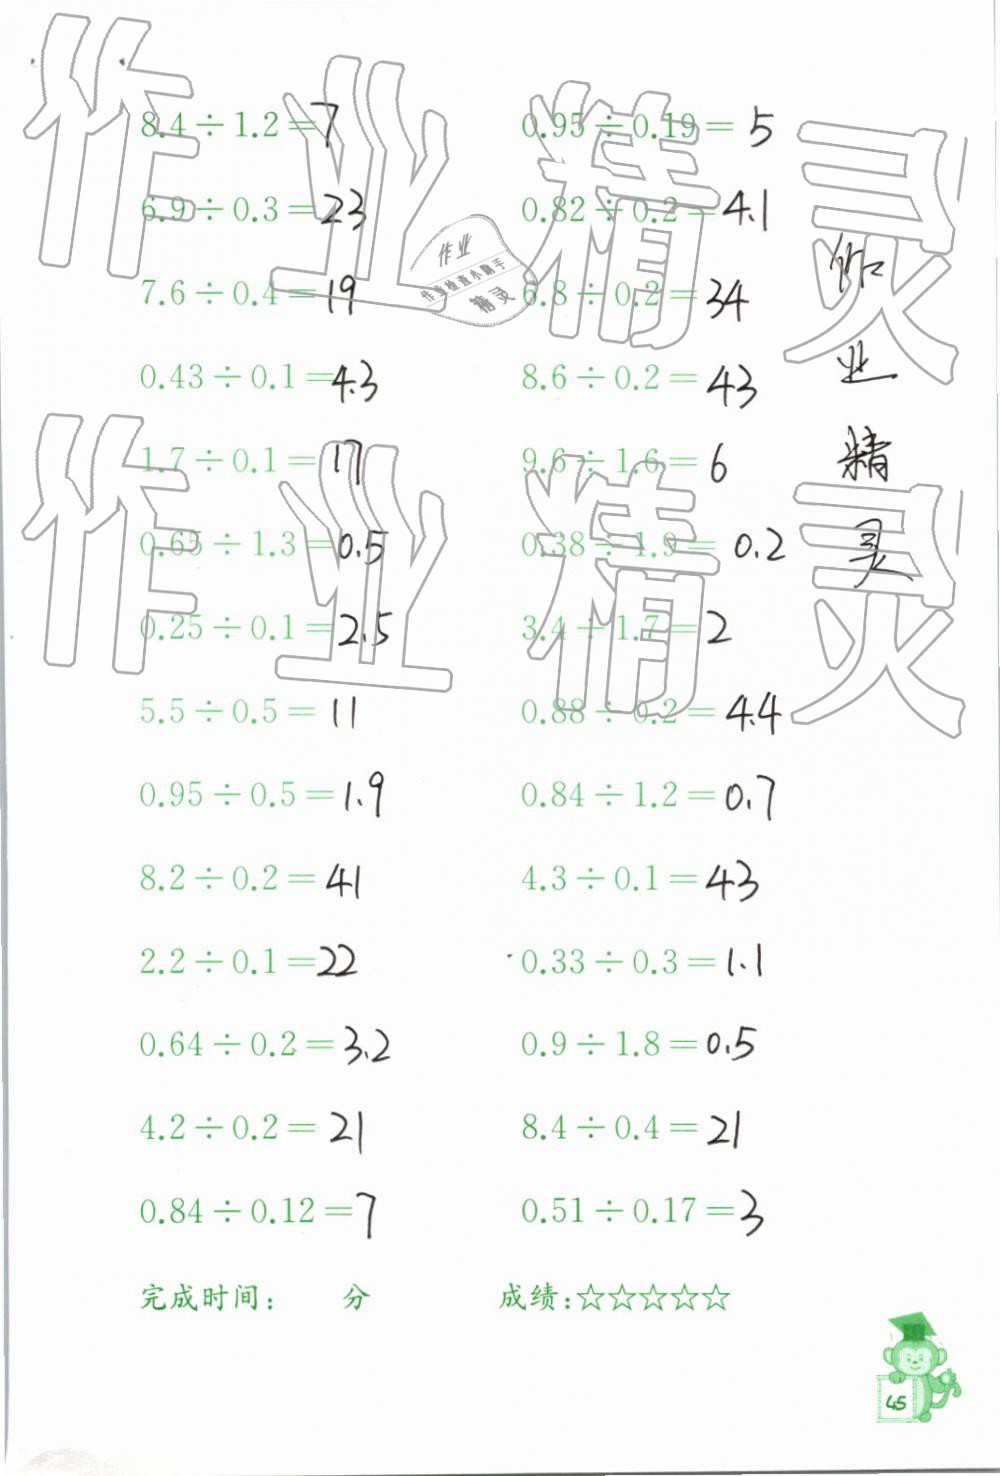 作业精灵
8.4÷1.2=7 0.95÷0.19=5
6.9÷0.3=23 0.82÷0.2=4.1
作业
作业检查小助手
精灵
7.6÷0.4=19 6.8÷0.2=34
0.43÷0.1=4.3 8.6÷0.2=43
作业精灵
1.7÷0.1=17 9.6÷1.6=6
0.65÷1.3=0.5 0.38÷1.9=0.2
作业精灵
0.25÷0.1=2.5 3.4÷1.7=2
5.5÷0.5=11 0.88÷0.2=4.4
0.95÷0.5=1.9 0.84÷1.2=0.7
8.2÷0.2=41 4.3÷0.1=43
2.2÷0.1=22 0.33÷0.3=1.1
0.64÷0.2=3.2 0.9÷1.8=0.5
4.2÷0.2=21 8.4÷0.4=21
0.84÷0.12=7 0.51÷0.17=3
完成时间： 分 成绩：☆☆☆☆☆
45